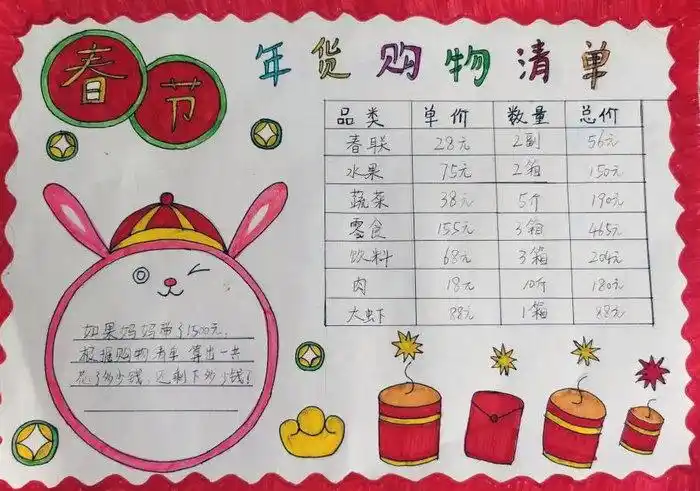 春节
年货购物清单
品类 单价 数量 总价
春联 28元 2副 56元
水果 75元 2箱 150元
蔬菜 38元 5斤 190元
零食 155元 3箱 465元
饮料 68元 3箱 204元
肉 18元 10斤 180元
大虾 88元 1箱 88元
如果妈妈带了1500元,
根据购物清单算出一共
花了多少钱,还剩下多少钱?